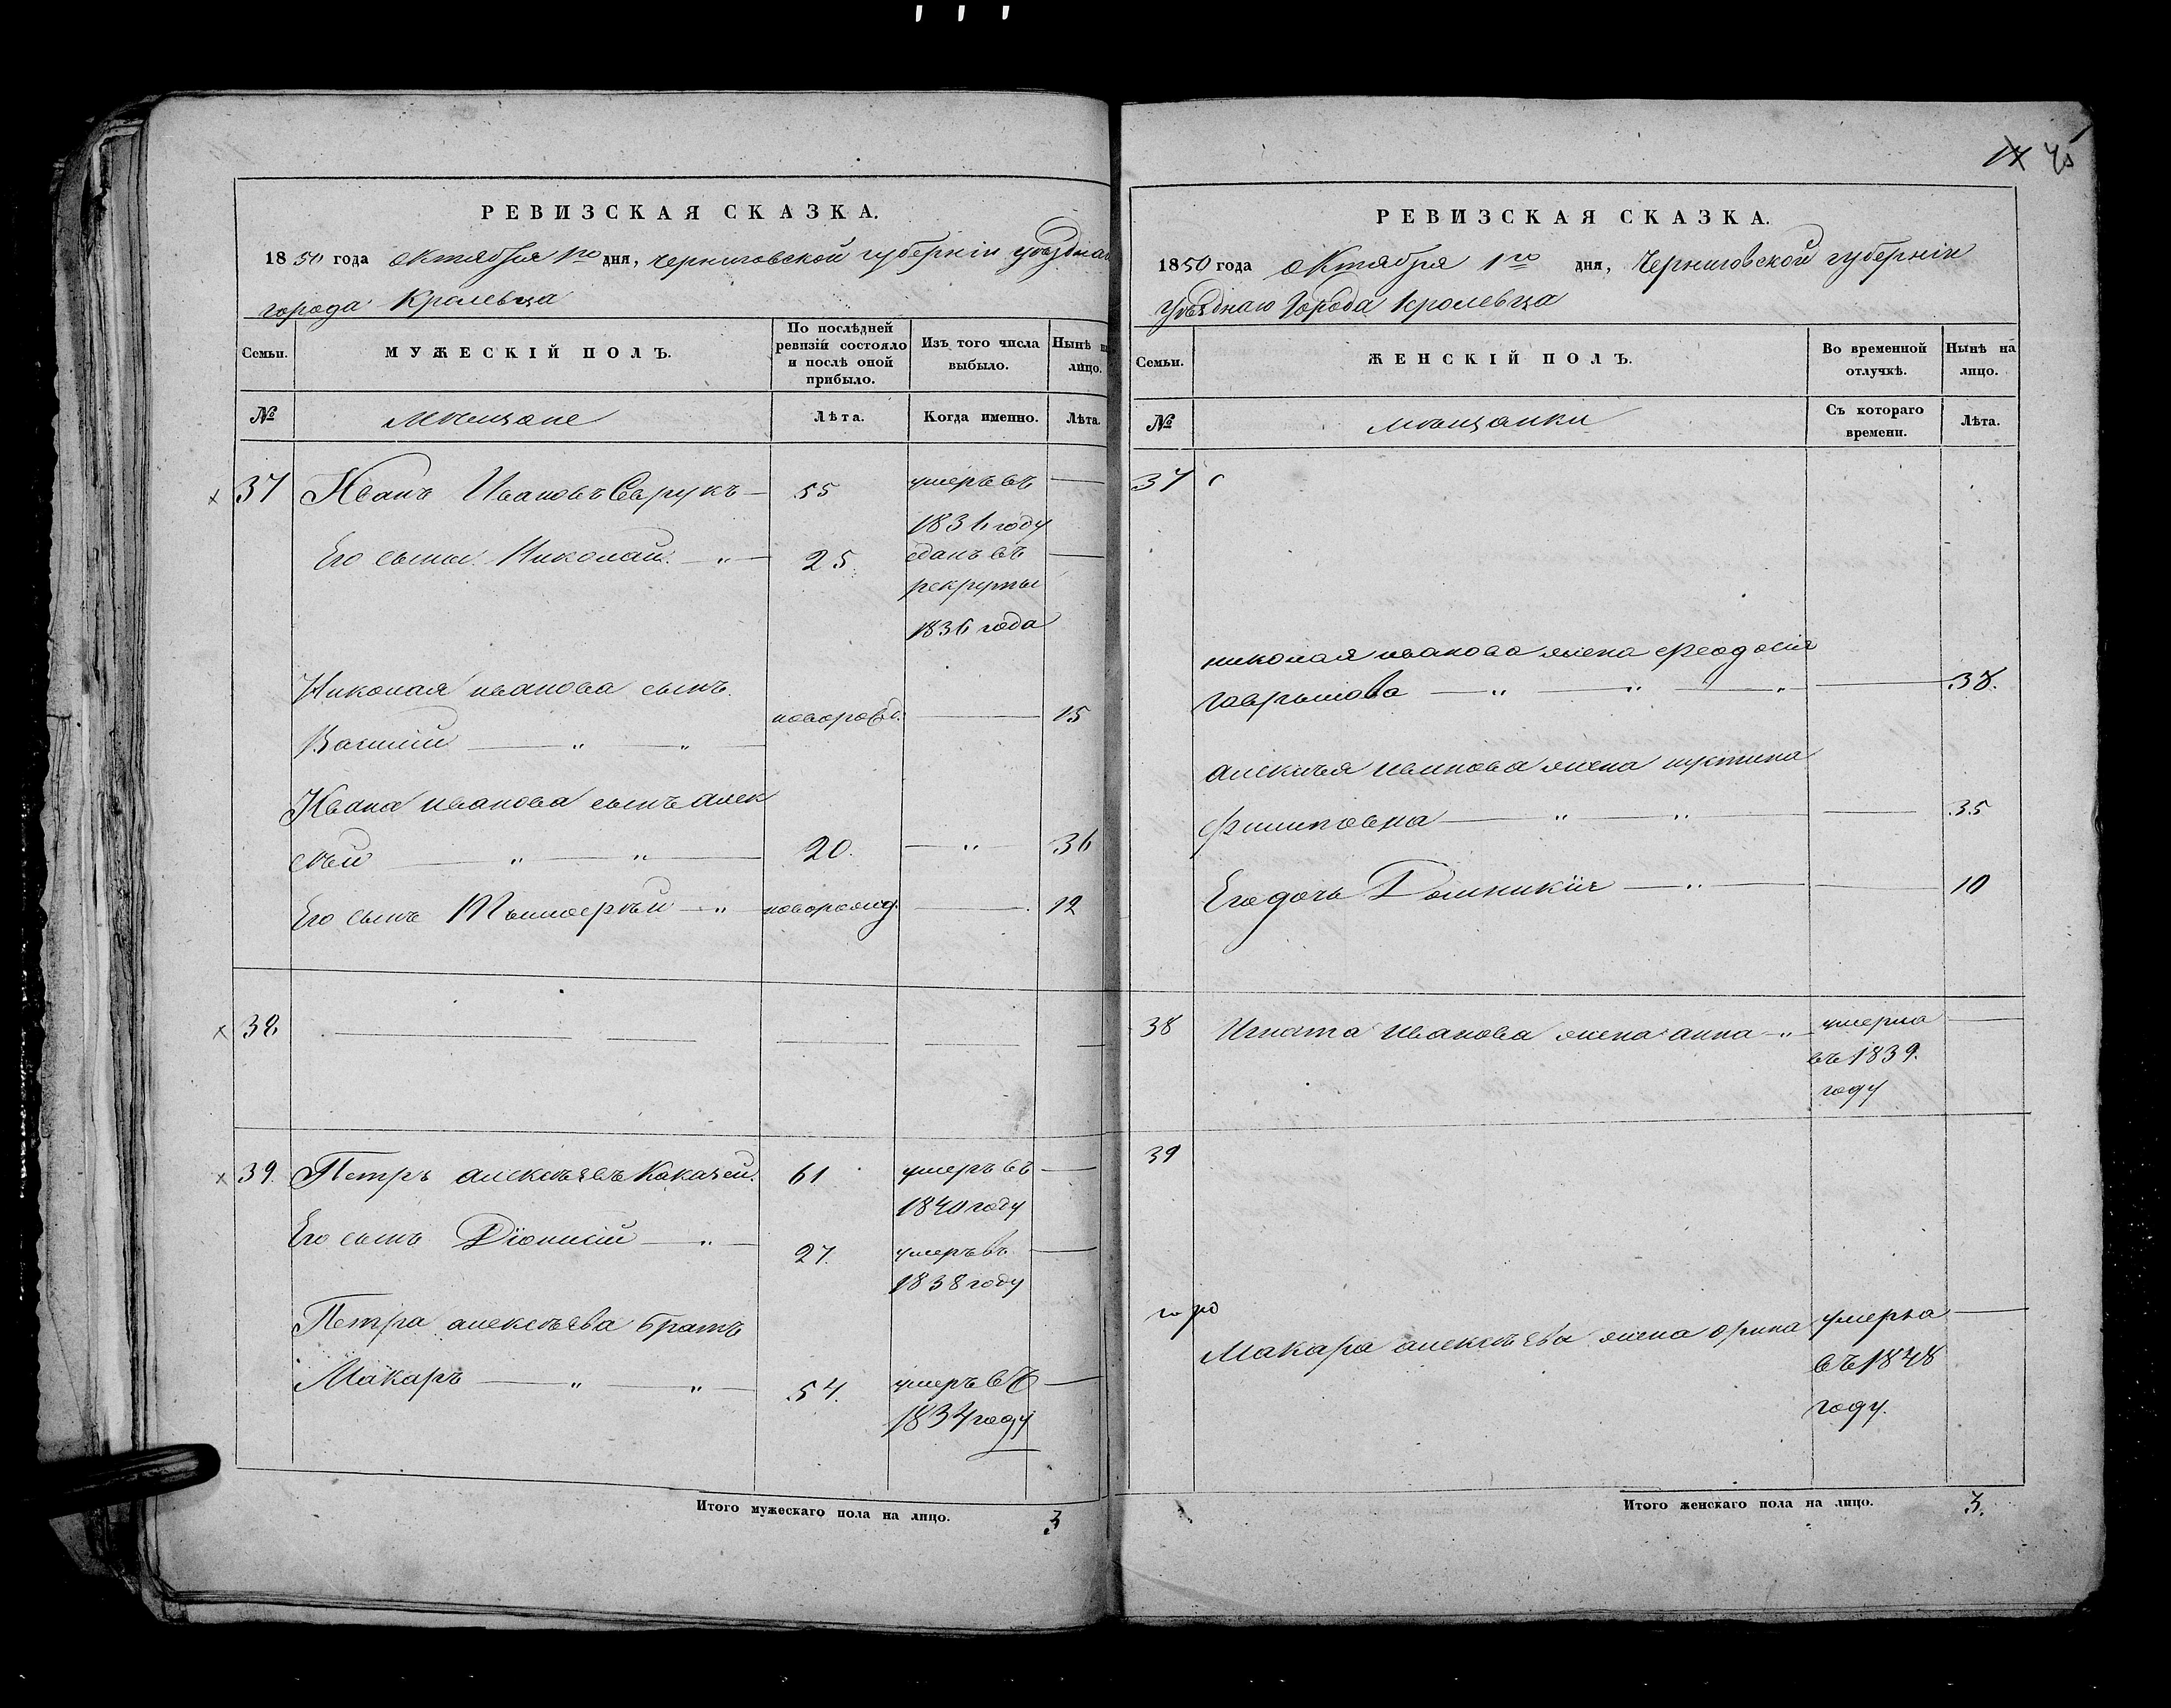 РЕВИЗСКАЯ СКАЗКА.
1850 года октября 1го дня, черниговской губерніи уѣзднаго
города Кролевца
Семьи.
МУЖЕСКІЙ ПОЛЪ.
По послѣдней
ревизій состояло
и послѣ оной
прибыло.
Изъ того числа
выбыло.
Нынѣ на
лицо.
№
мѣщане
Лѣта.
Когда именно.
Лѣта.
37 Иванъ Ивановъ 55 умеръ въ —
1836 году
Его сыны Николай — „ — 25 сданъ въ —
рекруты
1836 года
Николая иванова сынъ
Василій — „ — „ — новорожд. — 15
Ивана иванова сынъ алек
сѣй — „ — „ — 20. — „ — 36
Его сынъ Тимоѳей — „ — новорожд. — 12
38 — — — — —
39. Петръ алексѣевъ 61 умеръ въ —
1840 году
Его сынъ Діонисій — „ — 27. умеръ въ —
1838 году
Петра алексѣева братъ
Макаръ — „ — „ — 54. умеръ въ —
1834 году
Итого мужескаго пола на лицо. 3
45
РЕВИЗСКАЯ СКАЗКА.
1850 года октября 1го дня, Черниговской губерніи
уѣзднаго города Кролевца
Семьи.
ЖЕНСКІЙ ПОЛЪ.
Во временной
отлучкѣ.
Нынѣ на
лицо.
№
мѣщанки
Съ котораго
времени.
Лѣта.
37
николая иванова жена феодосія
гаврилова — „ — „ — „ — 38.
алексѣя иванова жена иустина
филиповна — „ — „ — 35
Его дочь Домникія — „ — 10
38 Игната иванова жена анна — „ — умерла —
въ 1839.
году
39
Макара алексѣева жена орина умерла —
въ 1848
году.
Итого женскаго пола на лицо. 3.